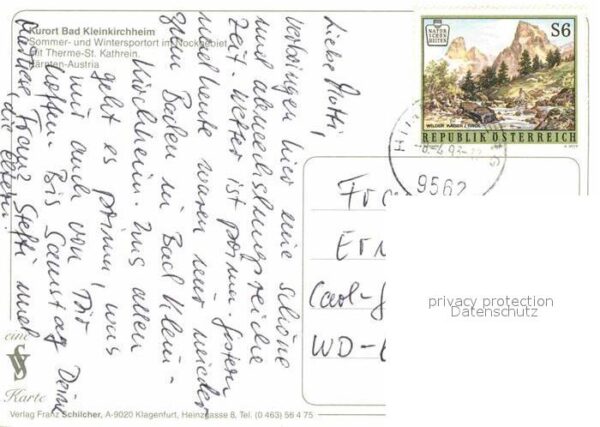 Kurort Bad Kleinkirchheim
Sommer- und Wintersportort im Nockgebiet
mit Therme-St. Kathrein.
Kärnten-Austria
NATUR
SCHÖN
HEITEN
S6
WILDER KAISER / TIROL
REPUBLIK ÖSTERREICH
9562
Liebe
verbringen hier eine schöne
und abwechslungsreiche
Zeit. Wetter ist prima. Gestern
und heute waren wir wieder
zum Baden in Bad Klein-
kirchheim. Uns allen
geht es prima, was
wir auch von Dir
hoffen. Bis Samstag Deine
Franz Steffi und
Carl-
WD-
privacy protection
Datenschutz
eine
Karte
Verlag Franz Schilcher, A-9020 Klagenfurt, Heinzgasse 8, Tel. (0 463) 56 4 75